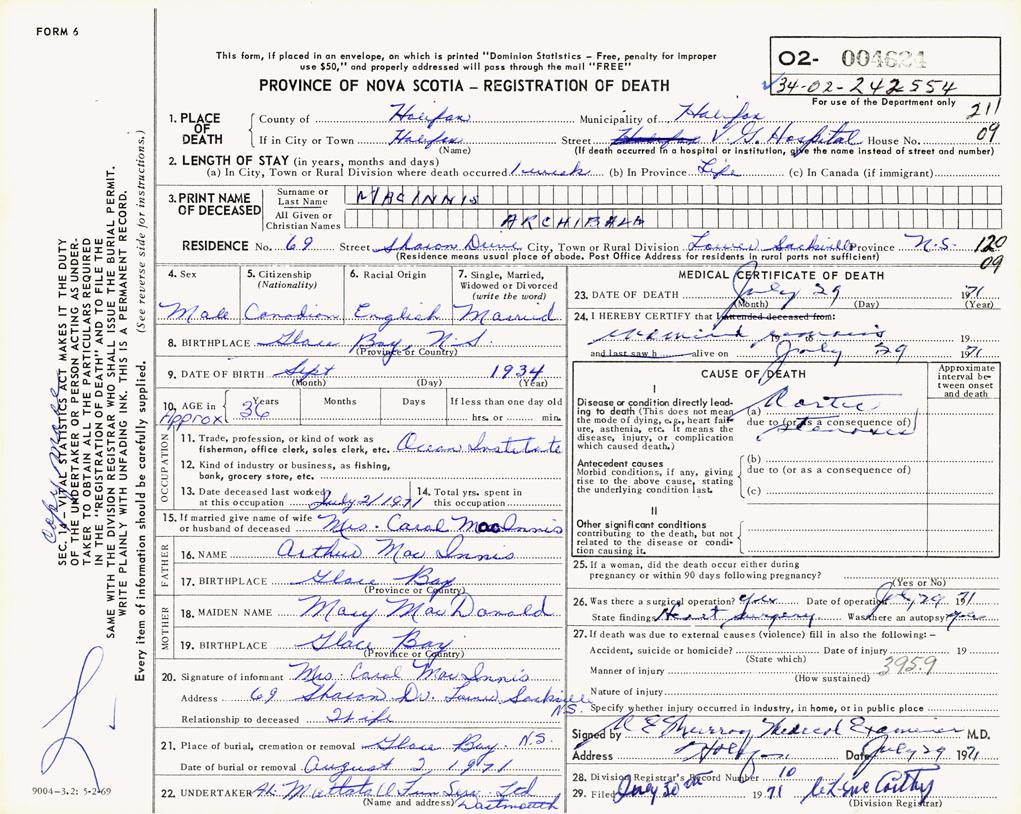 FORM 6
This form, if placed in an envelope, on which is printed "Dominion Statistics – Free, penalty for improper
use $50," and properly addressed will pass through the mail "FREE"
PROVINCE OF NOVA SCOTIA – REGISTRATION OF DEATH
02- 004624
34-02-242554
For use of the Department only
211
09
1. PLACE OF DEATH County of Halifax Municipality of Halifax
If in City or Town Halifax Street Halifax V. G. Hospital House No.
(Name) (If death occurred in a hospital or institution, give the name instead of street and number)
2. LENGTH OF STAY (in years, months and days)
(a) In City, Town or Rural Division where death occurred 1 week (b) In Province Life (c) In Canada (if immigrant)
3. PRINT NAME OF DECEASED Surname or Last Name MACINNIS
All Given or Christian Names ARCHIBALD
RESIDENCE No. 69 Street Sharon Drive City, Town or Rural Division Lower Sackville Province N.S. 120
(Residence means usual place of abode. Post Office Address for residents in rural parts not sufficient) 09
4. Sex 5. Citizenship (Nationality) 6. Racial Origin 7. Single, Married, Widowed or Divorced (write the word)
Male Canadian English Married
8. BIRTHPLACE Glace Bay, N.S.
(Province or Country)
9. DATE OF BIRTH Sept 1934
(Month) (Day) (Year)
10. AGE in Years Months Days If less than one day old
Approx 36 hrs. or min.
OCCUPATION
11. Trade, profession, or kind of work as
fisherman, office clerk, sales clerk, etc. Ocean Institute
12. Kind of industry or business, as fishing,
bank, grocery store, etc.
13. Date deceased last worked at this occupation July 21/1971 14. Total yrs. spent in this occupation
15. If married give name of wife
or husband of deceased Mrs. Carol MacInnis
FATHER
16. NAME Arthur Mac Innis
17. BIRTHPLACE Glace Bay
(Province or Country)
MOTHER
18. MAIDEN NAME Mary MacDonald
19. BIRTHPLACE Glace Bay
(Province or Country)
20. Signature of informant Mrs. Carol MacInnis
Address 69 Sharon Dr. Lower Sackville N.S.
Relationship to deceased Wife
21. Place of burial, cremation or removal Glace Bay. N.S.
Date of burial or removal August 2, 1971
22. UNDERTAKER Fun Serv. Ltd
(Name and address) Dartmouth
MEDICAL CERTIFICATE OF DEATH
23. DATE OF DEATH July 29 1971
(Month) (Day) (Year)
24. I HEREBY CERTIFY that I attended deceased from:
examined remains 19 to 19
and last saw h alive on July 29 1971
CAUSE OF DEATH
Approximate interval between onset and death
I
Disease or condition directly lead-
ing to death (This does not mean (a) Aortic
the mode of dying, e.g., heart fail- due to (or as a consequence of)
ure, asthenia, etc. It means the stenosis
disease, injury, or complication
which caused death.)
Antecedent causes (b)
Morbid conditions, if any, giving due to (or as a consequence of)
rise to the above cause, stating
the underlying condition last. (c)
II
Other significant conditions
contributing to the death, but not
related to the disease or condi-
tion causing it.
25. If a woman, did the death occur either during
pregnancy or within 90 days following pregnancy?
(Yes or No)
26. Was there a surgical operation? Yes Date of operation July 29 1971
State findings Heart Surgery Was there an autopsy? yes
27. If death was due to external causes (violence) fill in also the following: –
Accident, suicide or homicide? Date of injury 19
(State which) 395.9
Manner of injury
(How sustained)
Nature of injury
Specify whether injury occurred in industry, in home, or in public place
Signed by R E Murray Medical Examiner M.D.
Address Halifax Date July 29 1971
28. Division Registrar's Record Number 10
29. Filed July 30th 1971
(Division Registrar)
SEC. 14 – VITAL STATISTICS ACT MAKES IT THE DUTY
OF THE UNDERTAKER OR PERSON ACTING AS UNDER-
TAKER TO OBTAIN ALL THE PARTICULARS REQUIRED
IN THE "REGISTRATION OF DEATH" AND TO FILE THE
SAME WITH THE DIVISION REGISTRAR WHO SHALL ISSUE THE BURIAL PERMIT.
WRITE PLAINLY WITH UNFADING INK. THIS IS A PERMANENT RECORD.
Every item of information should be carefully supplied. (See reverse side for instructions.)
9004-3.2: 5-2-69